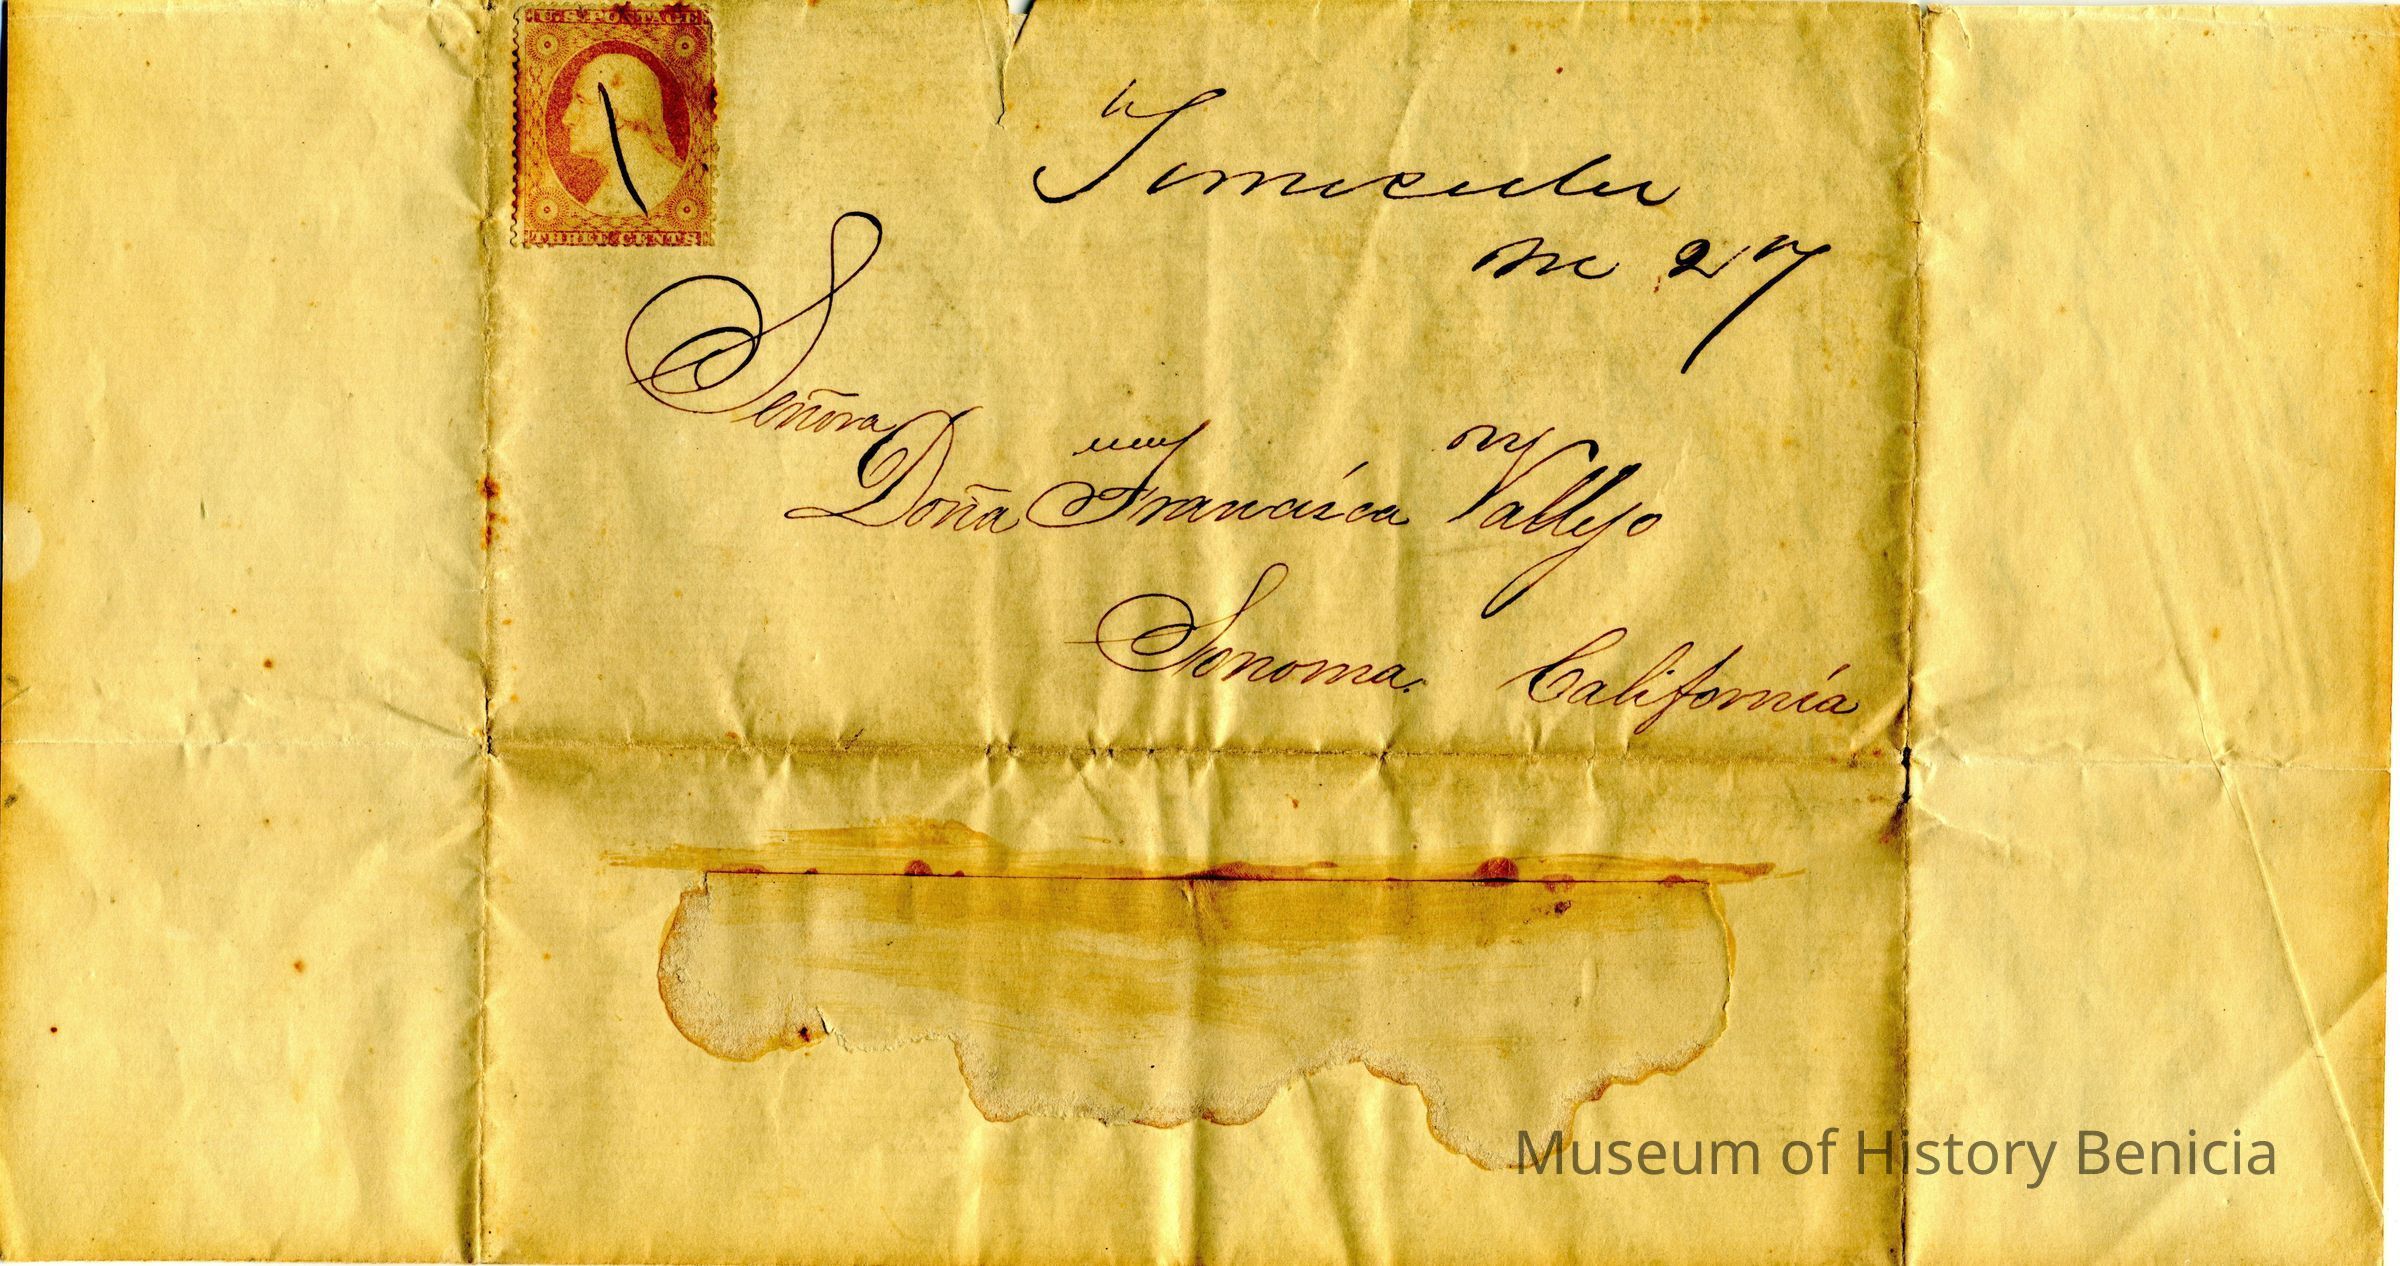 U.S. POSTAGE
THREE CENTS
Temecula
27
Señora
Doña Francisca Vallejo
Sonoma. California
Museum of History Benicia